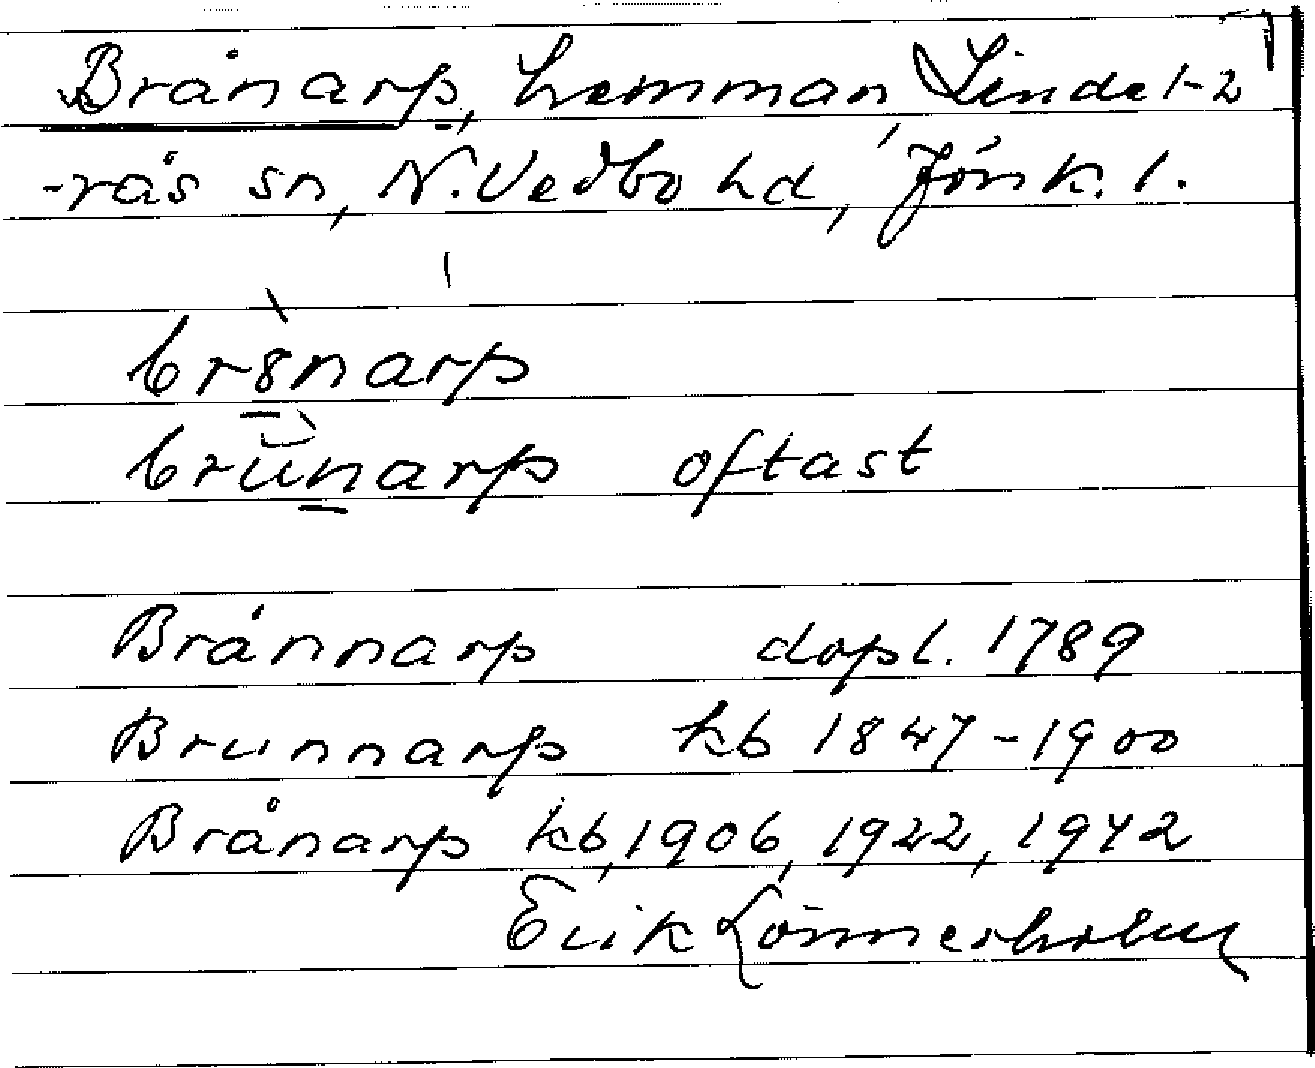 Brånarp, hemman Linde 1-2
-rås sn, N. Vedbo hd, Jönk. l.
br8̀narp
brùnarp oftast
Brånnarp dopl. 1789
Brunnarp kb 1847-1900
Brånarp kb, 1906, 1922, 1942
Erik Lönnerholm